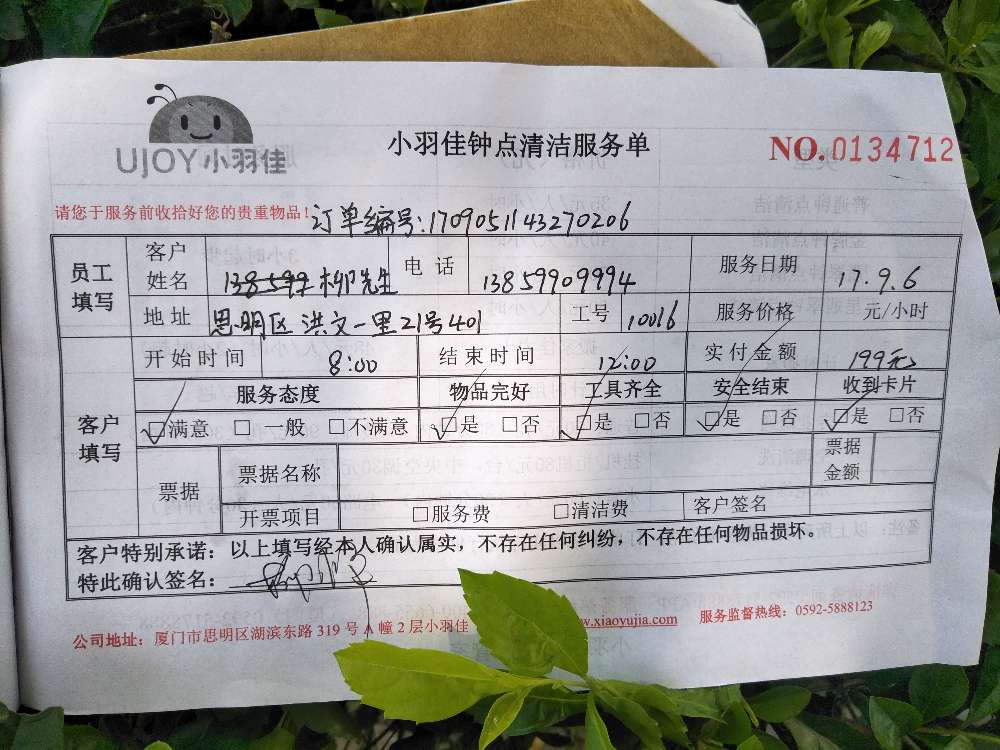 UJOY小羽佳
小羽佳钟点清洁服务单
NO.0134712
请您于服务前收拾好您的贵重物品！
订单编号:1709051143270206
员工填写 客户姓名 柳先生 电话 13859909994 服务日期 17.9.6
地址 思明区洪文一里21号401 工号 10016 服务价格 元/小时
客户填写 开始时间 8:00 结束时间 12:00 实付金额 199元
服务态度 物品完好 工具齐全 安全结束 收到卡片
☑满意 □一般 □不满意 ☑是 □否 ☑是 □否 ☑是 □否 ☑是 □否
票据 票据名称 票据金额
开票项目 □服务费 □清洁费 客户签名
客户特别承诺：以上填写经本人确认属实，不存在任何纠纷，不存在任何物品损坏。
特此确认签名：
公司地址：厦门市思明区湖滨东路 319 号 A 幢 2 层小羽佳 w.xiaoyujia.com 服务监督热线：0592-5888123